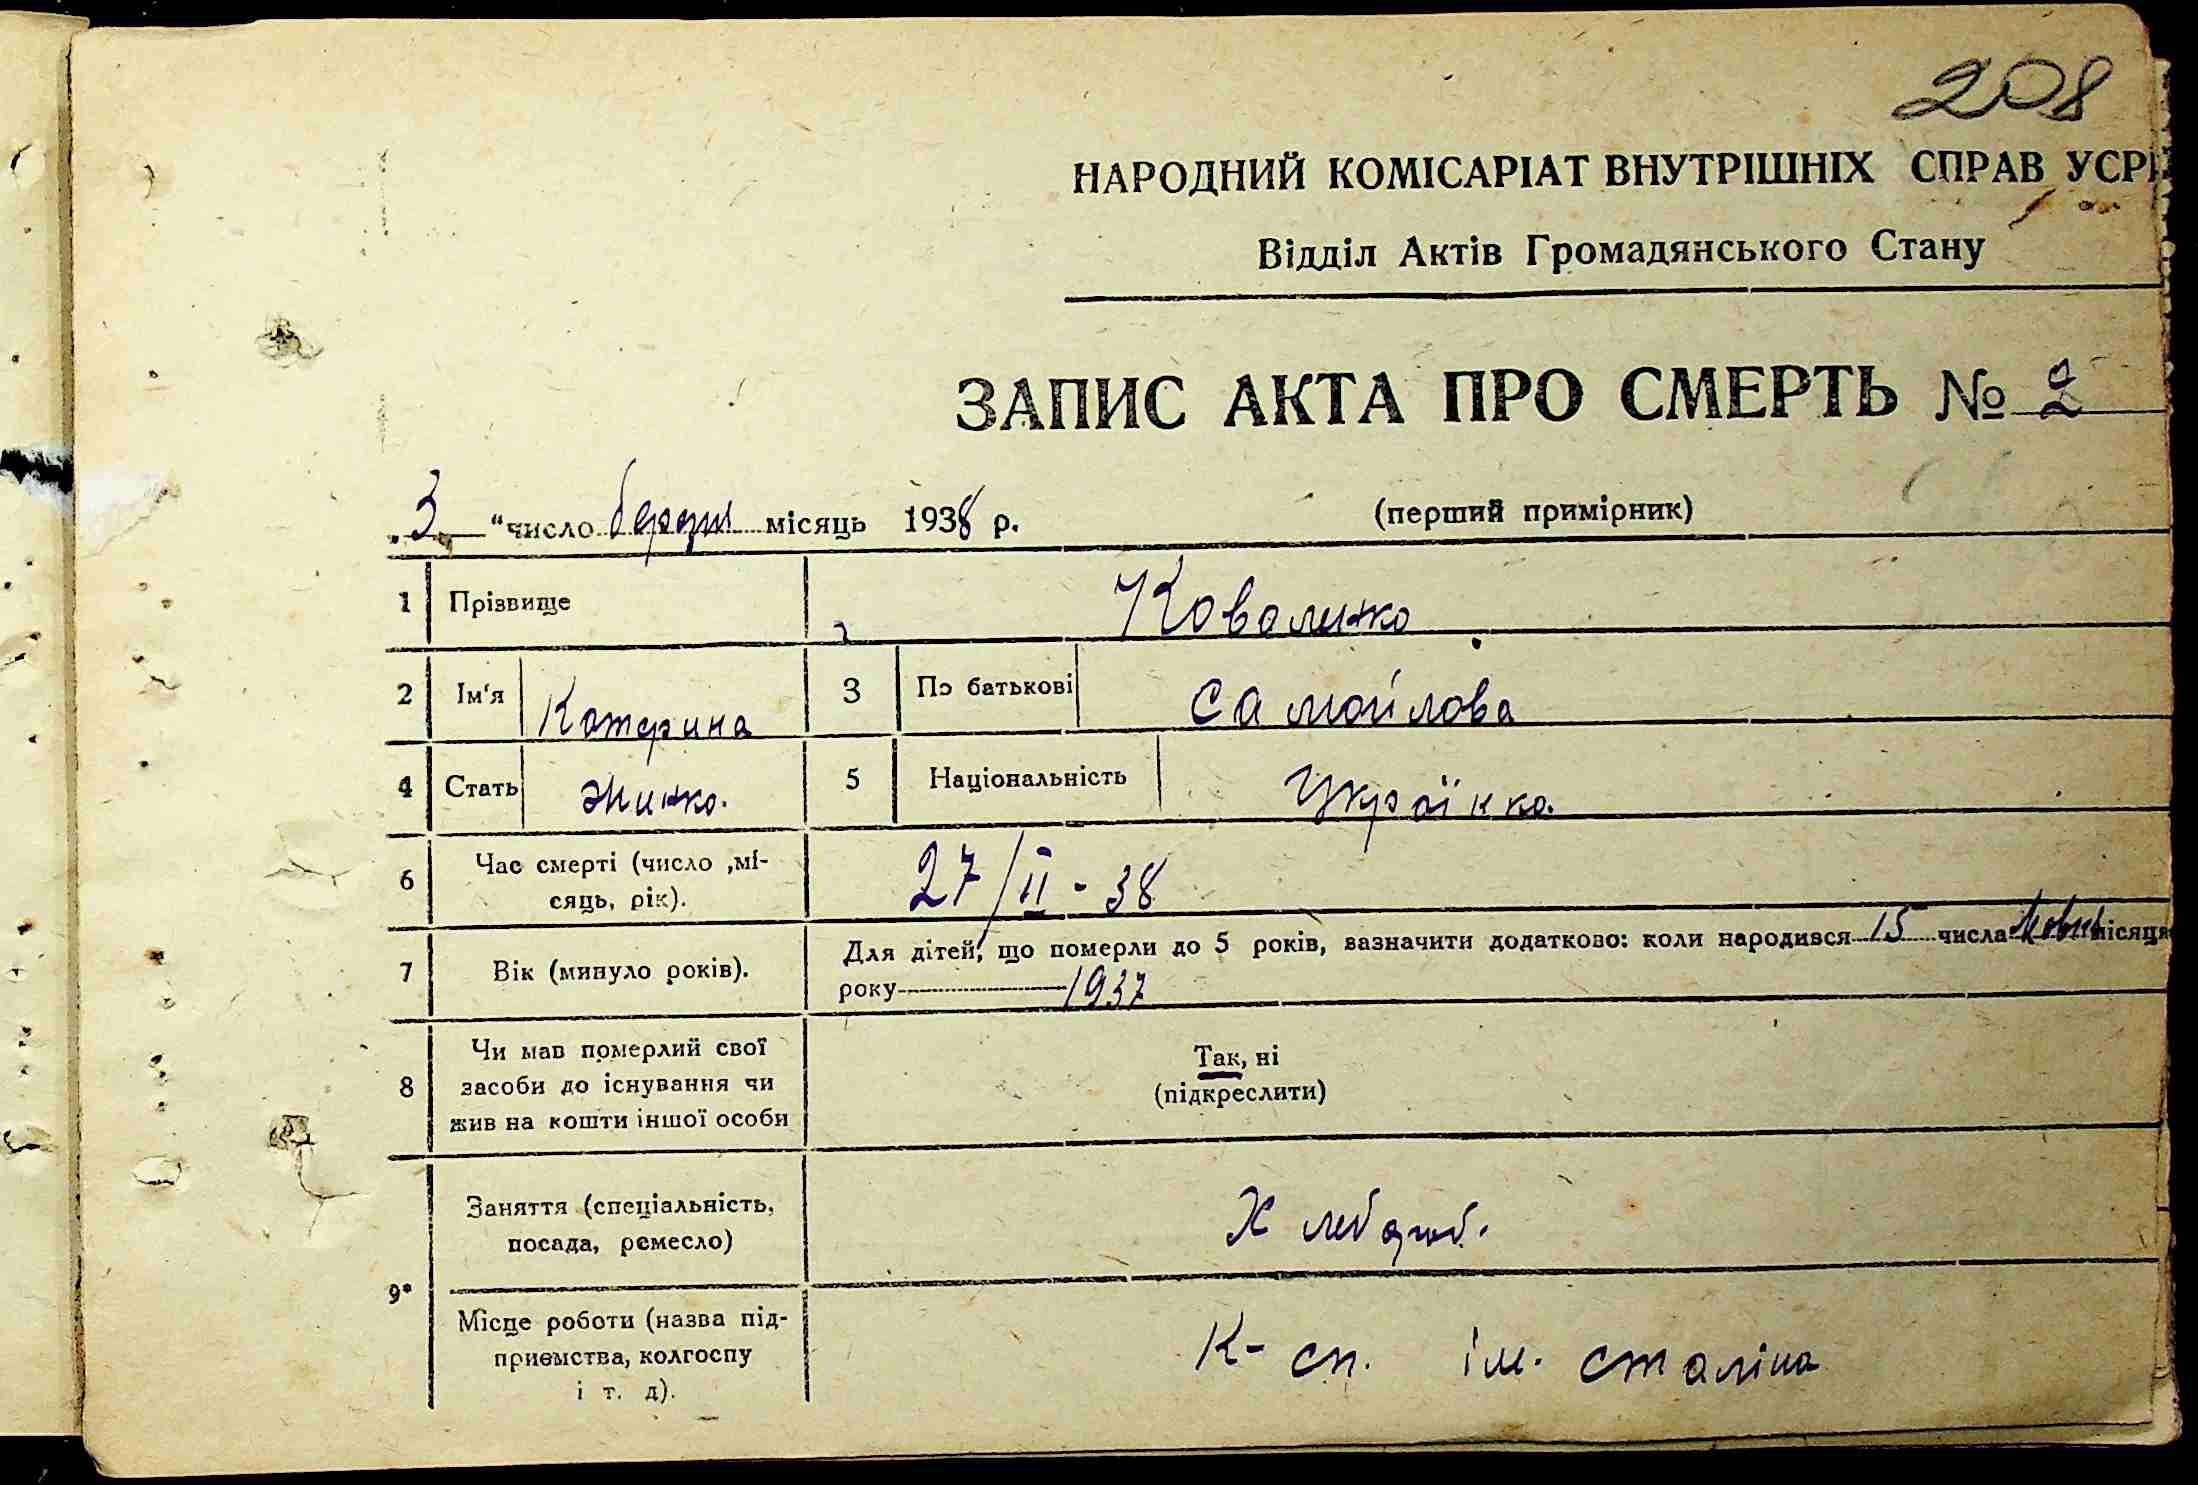 208
НАРОДНИЙ КОМІСАРІАТ ВНУТРІШНІХ СПРАВ УСРР
Відділ Актів Громадянського Стану
ЗАПИС АКТА ПРО СМЕРТЬ № 2
3 "число місяць 1938 р. (перший примірник)
1 Прізвище Коваленко
2 Ім'я Катерина 3 По батькові Самойлова
4 Стать жинка. 5 Національність Українка.
6 Час смерті (число ,мі-
сяць, рік). 27/II - 38
7 Вік (минуло років). Для дітей, що померли до 5 років, вазначити додатково: коли народився 15 числа місяця
року 1937
8 Чи мав померлий свої
засоби до існування чи
жив на кошти іншої особи
Так, ні
(підкреслити)
9* Заняття (спеціальність,
посада, ремесло) Хлебороб.
Місце роботи (назва під-
приємства, колгоспу
і т. д). К-сп. ім. сталіна